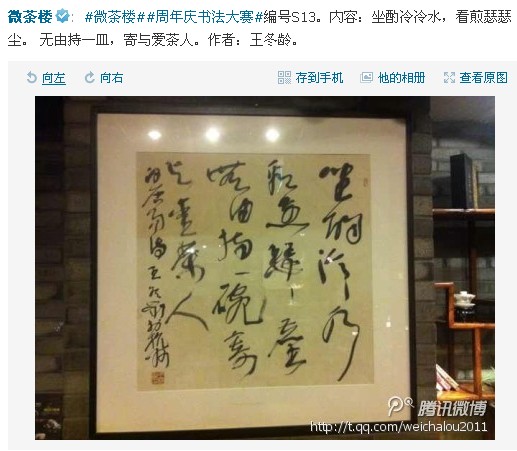 微茶楼：#微茶楼##周年庆书法大赛#编号S13。内容：坐酌泠泠水，看煎瑟瑟
尘。 无由持一皿，寄与爱茶人。作者：王冬龄。
向左 向右 存到手机 他的相册 查看原图
坐酌泠水
看煎瑟〻尘
无由持一碗寄
与爱茶人
白居易诗王冬龄
腾讯微博
http://t.qq.com/weichalou2011